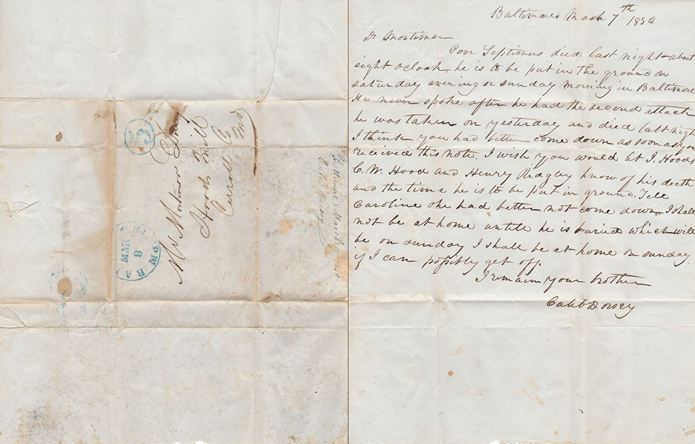 Baltimore March 7th 1850
Dr Mortimer
Poor Septimus died last night about
eight oclock he is to be put in the ground on
saturday evening or sunday morning in Baltimore
He never spoke after he had the second attack
he was taken on yesterday and died last night
I think you had better come down as soon as you
received this note. I wish you would let J. Hood
C. W. Hood and Henry Ridgay know of his death
and the time he is to be put in ground. Tell
Caroline she had better not come down I shall
not be at home untill he is buried which will
be on sunday I shall be at home on sunday
if I can possibly get off.
I remain your brother
Caleb Dorsey
Mr Mortimer Dorsey
Hoods Mill
Carroll Co
Md
MAR
8